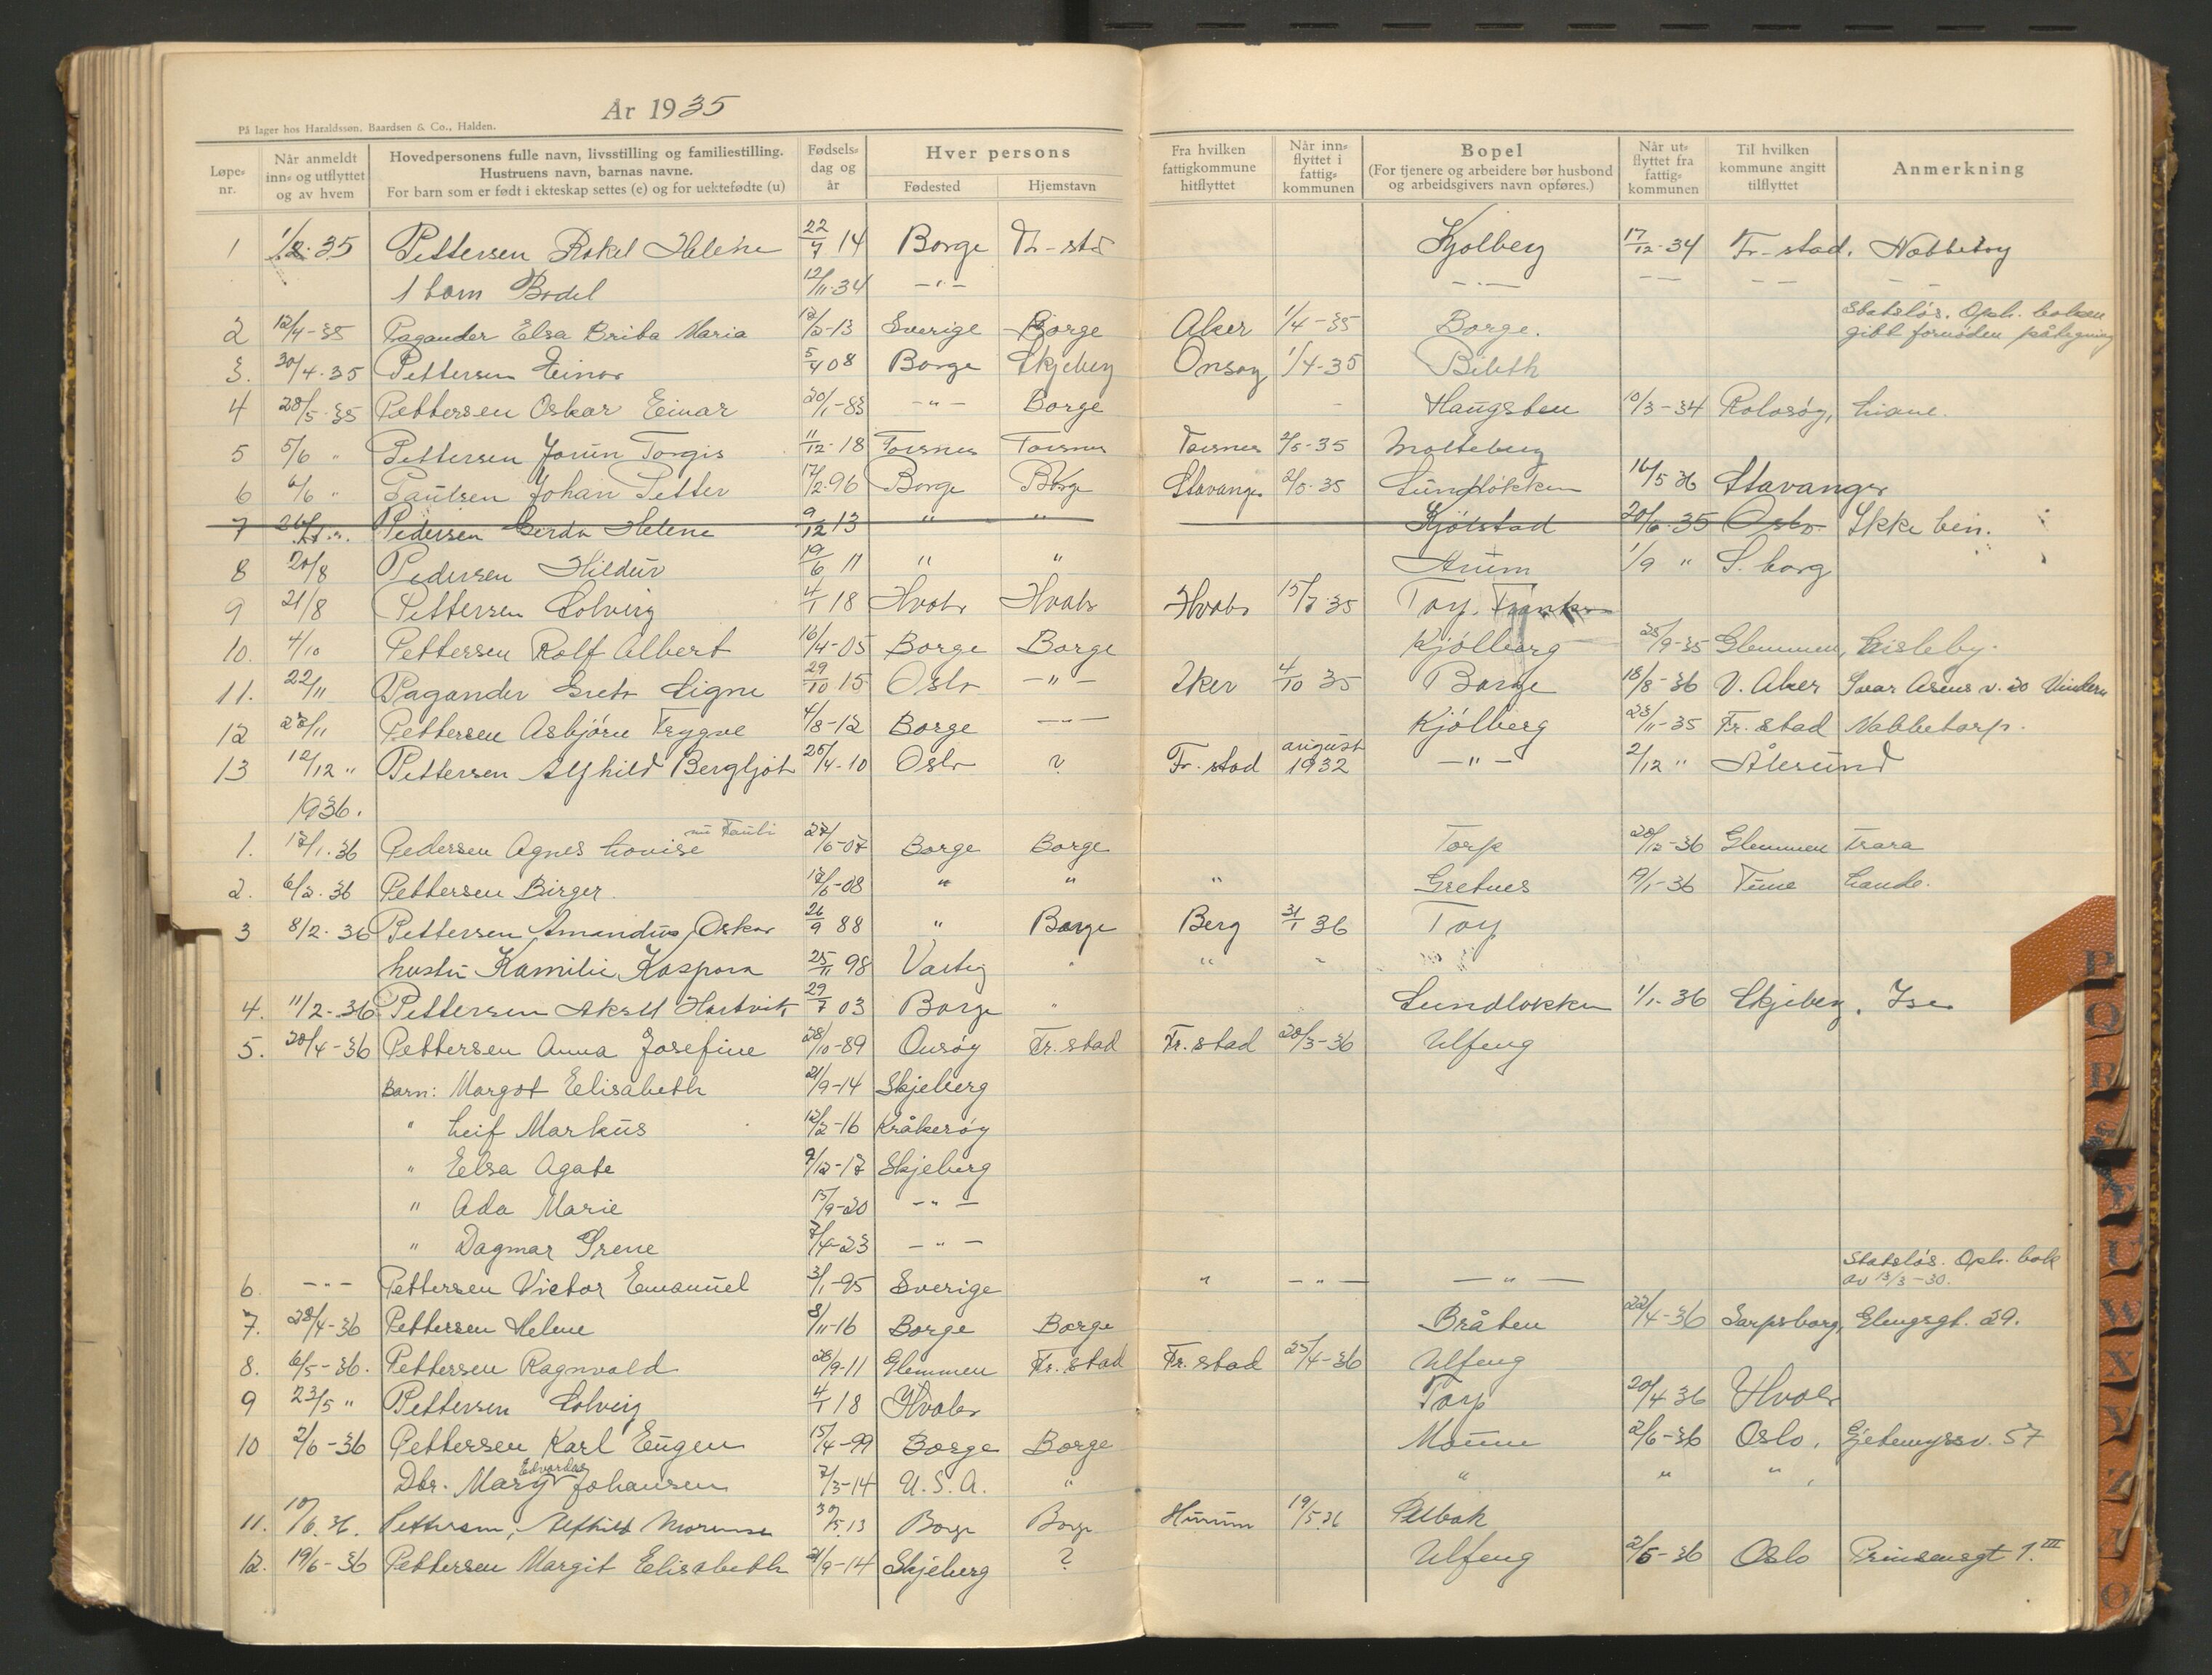 År 1935
På lager hos Haraldssøn, Baardsen & Co., Halden.
Løpe-nr. | Når anmeldt inn- og utflyttet og av hvem | Hovedpersonens fulle navn, livsstilling og familiestilling. Hustruens navn, barnas navne. For barn som er født i ekteskap settes (e) og for uektefødte (u) | Fødsels-dag og år | Hver persons Fødested | Hjemstavn | Fra hvilken fattigkommune hitflyttet | Når inn-flyttet i fattig-kommunen | Bopel (For tjenere og arbeidere bør husbond og arbeidsgivers navn opføres.) | Når ut-flyttet fra fattig-kommunen | Til hvilken kommune angitt tilflyttet | Anmerkning
1 1/2.35 Pettersen Rakel Helene 22/7 14 Borge Fr-std Kjølberg 17/12-34 Fr-stad. Nabbetorp
1 barn Bodel 12/11.34 -"- -"- - - - - - -
2 12/4-35 Pagander Elsa Brita Maria 12/2-13 Sverige Borge Aker 1/4-35 Borge. Statsløs. Oph. boken gitt fornøden påtegning
3. 30/4.35 Pettersen Einar 5/4 08 Borge Skjeberg Onsøy 1/4-35 Bibeth
4 28/5-35 Pettersen Oskar Einar 20/1-83 -"- Borge - Haugsten 10/3-34 Rolvsøy, Liane.
5 5/6 " Pettersen Jorun Torgis 11/12-18 Torsnes Torsnes Torsnes 2/5-35 Molteberg
6 6/6 " Paulsen Johan Petter 17/2.96 Borge Borge Stavanger 2/5-35 Sundløkken 16/5 36 Stavanger
7 Pedersen Gerda Helene 9/12 13 " " Kjølstad 20/6.35 Oslo Ikke ben.
8 20/8 Pedersen Hildur 19/6 11 " " Årum 1/9 " S. borg
9 21/8 Pettersen Solveig 4/1 18 Hvaler Hvaler Hvaler 15/7.35 Torp.
10. 4/10 Pettersen Rolf Albert 16/4-05 Borge Borge Kjølberg 25/9-35 Glemmen, Lisleby.
11. 22/11 Pagander Greta Signe 29/10 15 Oslo -"- Aker 4/10 35 Borge 18/8-36 V. Aker Ivar Åsens v. 20 Vindern
12 27/11 Pettersen Asbjørn Trygve 4/8-12 Borge -"- Kjølberg 23/11-35 Fr. stad Nabbetorp.
13 12/12 " Pettersen Alfhild Bergljot 25/4-10 Oslo ? Fr. stad august 1932 -"- 2/12 " Ålesund
1936.
1. 17/1.36 Pedersen Agnes Louise 27/6-07 Borge Borge Torp 20/12-36 Glemmen Trara
2. 6/2.36 Pettersen Birger 12/6-08 " " " Gretnes 19/1-36 Time Lande.
3 8/2.36 Pettersen Amandus, Oskar 26/9 88 " Borge Berg 31/1 36 Torp
hustru Kamilie Kaspara 25/11 98 Varteig " " "
4. 11/2-36 Pettersen Aksell Hartvik 29/7 03 Borge " Sundløkken 1/1.36 Skjeberg. Ise
5. 20/4-36 Pettersen Anna Josefine 28/10-89 Onsøy Fr. stad Fr. stad 20/3-36 Ulfeng
Barn: Margot Elisabeth 21/9-14 Skjeberg
" Leif Markus 12/2-16 Kråkerøy
" Elsa Agate 9/12-17 Skjeberg
" Ada Marie 15/9-20 -"-
" Dagmar Irene 7/4-23 -"-
6. -"- Pettersen Victor Emanuel 3/1-95 Sverige " -"- -"- Statsløs. Oph. bok av 13/3-30.
7. 28/4-36 Pettersen Helene 8/11-16 Borge Borge Bråten 22/4-36 Sarpsborg, Elengsgt. 29.
8. 6/5-36. Pettersen Ragnvald 28/9-11 Glemmen Fr. stad Fr. stad 25/4-36 Ulfeng
9 23/5 " Pettersen Solveig 4/1 18 Hvaler Torp 20/4 36 Hvaler
10 2/6-36 Pettersen Karl Eugen 15/4-99 Borge Borge Moum 2/6-36 Oslo, Gjetemyrsv. 57
Dtr. Mary Edvardas Johansen 7/3-14 U.S.A. " " " "
11. 10/6.36. Pettersen, Alfhild 30/5.13 Borge Borge Hurum 19/5.36 Pilbak
12. 19/6-36 Pettersen Margit Elisabeth 21/9-14 Skjeberg ? Ulfeng 2/5-36 Oslo Prinsensgt 1. III